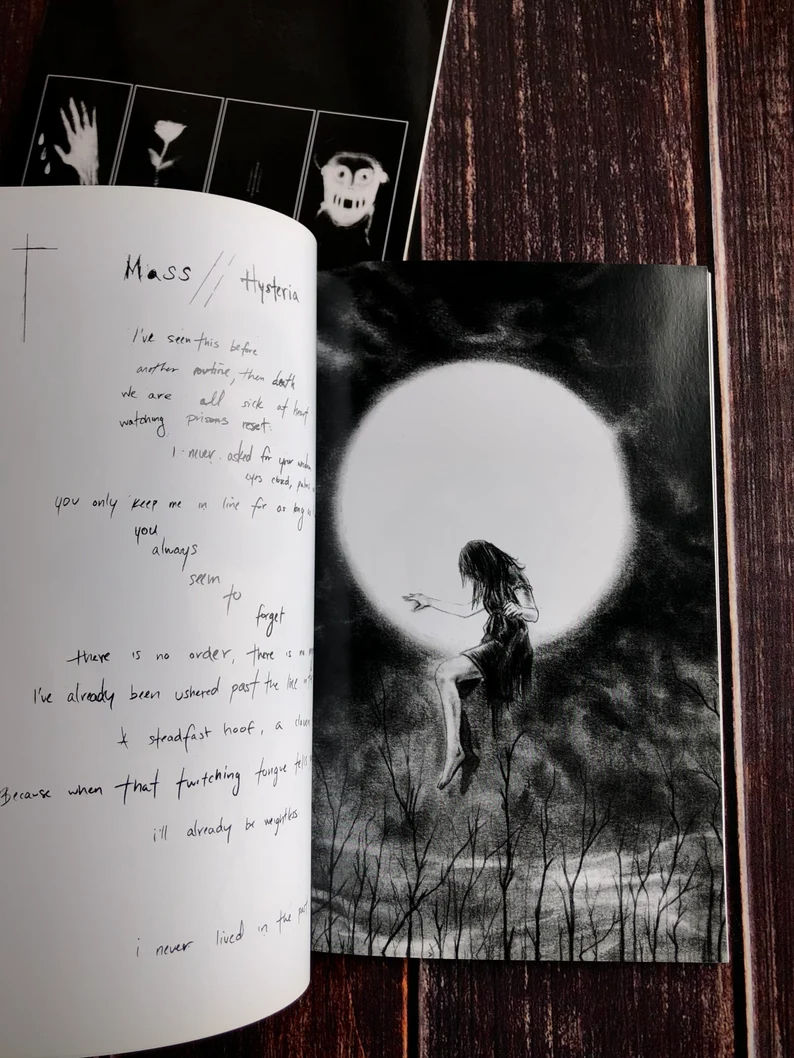 Mass // Hysteria
I've seen this before
another routine, then death
we are all sick at heart
watching prisons reset.
I never asked for your
eyes closed,
you only keep me in line for as long
you
always
seem
to
forget
there is no order, there is no
I've already been ushered past the line
A steadfast hoof, a
Because when that twitching tongue tells
i'll already be weightless
i never lived in the